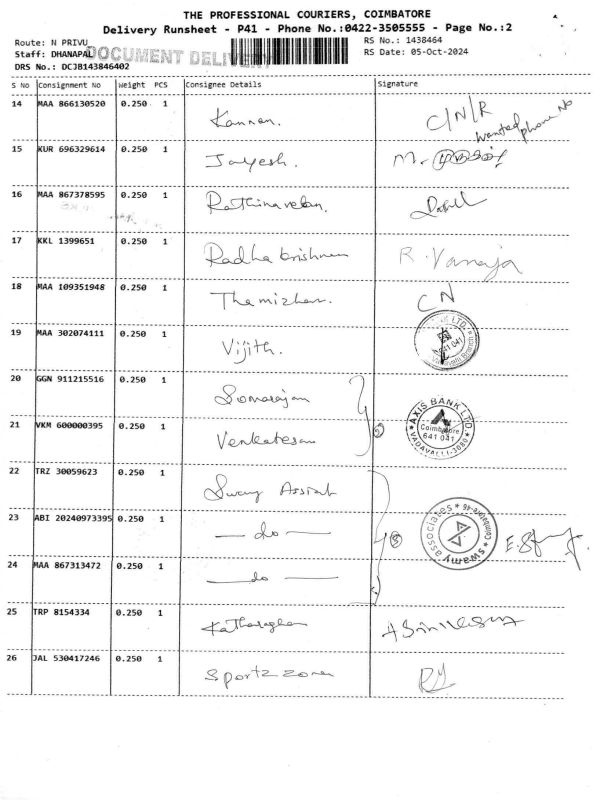 THE PROFESSIONAL COURIERS, COIMBATORE
Delivery Runsheet - P41 - Phone No.:0422-3505555 - Page No.:2
Route: N PRIVU RS No.: 1438464
Staff: DHANAPAL DOCUMENT DELIVERY RS Date: 05-Oct-2024
DRS No.: DCJB143846402
S No Consignment No Weight PCS Consignee Details Signature
14 MAA 866130520 0.250 1 Kannan. C/N/R
wanted phone No
15 KUR 696329614 0.250 1 Jayesh. M.
16 MAA 867378595 0.250 1 Rathinavelan.
17 KKL 1399651 0.250 1 Radha krishnan R. Vanaja
18 MAA 109351948 0.250 1 Thamizhan. CN
19 MAA 302074111 0.250 1 Vijith. LTD. 641 041 Branch
20 GGN 911215516 0.250 1 Somarajan
21 VKM 600000395 0.250 1 Venkatesan AXIS BANK LTD. Coimbatore 641 041 VADAVALLI-3080
22 TRZ 30059623 0.250 1 Swamy
23 ABI 20240973395 0.250 1 — do — swamy associates Coimbatore-46
24 MAA 867313472 0.250 1 — do —
25 TRP 8154334 0.250 1
26 JAL 530417246 0.250 1 Sportz zone